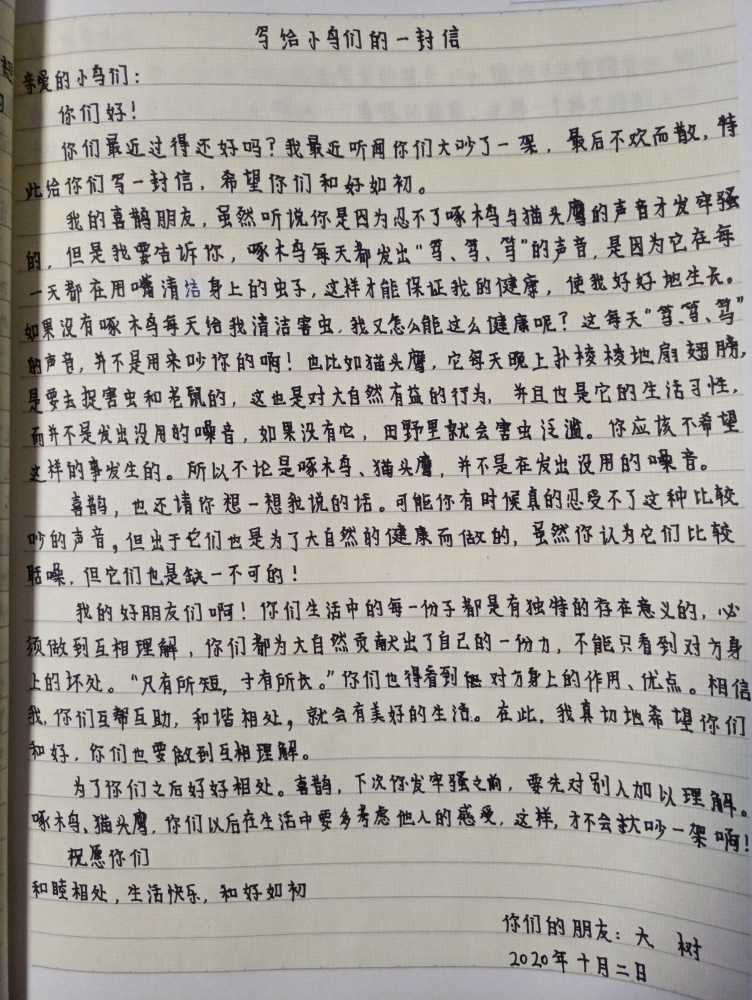 写给小鸟们的一封信
亲爱的小鸟们：
你们好！
你们最近过得还好吗？我最近听闻你们大吵了一架，最后不欢而散，特
此给你们写一封信，希望你们和好如初。
我的喜鹊朋友，虽然听说你是因为忍不了啄木鸟与猫头鹰的声音才发牢骚
的，但是我要告诉你，啄木鸟每天都发出“笃、笃、笃”的声音，是因为它在每
一天都在用嘴清洁身上的虫子，这样才能保证我的健康，使我好好地生长。
如果没有啄木鸟每天给我清洁害虫，我又怎么能这么健康呢？这每天“笃、笃、笃”
的声音，并不是用来吵你的啊！也比如猫头鹰，它每天晚上扑棱棱地扇翅膀，
是要去捉害虫和老鼠的，这也是对大自然有益的行为，并且也是它的生活习性，
而并不是发出没用的噪音，如果没有它，田野里就会害虫泛滥。你应该不希望
这样的事发生的。所以不论是啄木鸟、猫头鹰，并不是在发出没用的噪音。
喜鹊，也还请你想一想我说的话。可能你有时候真的忍受不了这种比较
吵的声音，但出于它们也是为了大自然的健康而做的，虽然你认为它们比较
聒噪，但它们也是缺一不可的！
我的好朋友们啊！你们生活中的每一份子都是有独特的存在意义的，必
须做到互相理解，你们都为大自然贡献出了自己的一份力，不能只看到对方身
上的坏处。“尺有所短，寸有所长。”你们也得看到对方身上的作用、优点。相信
我，你们互帮互助，和谐相处，就会有美好的生活。在此，我真切地希望你们
和好，你们也要做到互相理解。
为了你们之后好好相处。喜鹊，下次你发牢骚之前，要先对别人加以理解。
啄木鸟，猫头鹰，你们以后在生活中要多考虑他人的感受，这样，才不会大吵一架啊！
祝愿你们
和睦相处，生活快乐，和好如初
你们的朋友：大 树
2020年十月二日